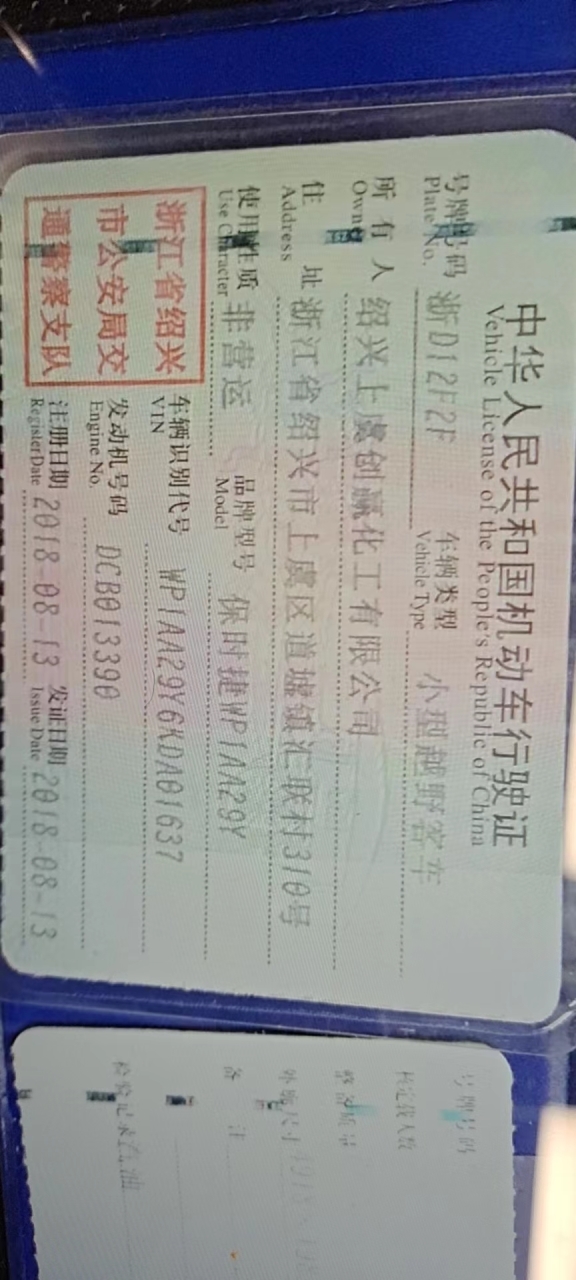 中华人民共和国机动车行驶证
Vehicle License of the People's Republic of China
号牌号码 浙D12F2F 车辆类型 小型越野客车
Plate No. Vehicle Type
所有人 绍兴上虞创赢化工有限公司
Owner
住址 浙江省绍兴市上虞区道墟镇汇联村310号
Address
使用性质 非营运 品牌型号 保时捷WP1AA29Y
Use Character Model
浙江省绍兴
市公安局交
通警察支队
车辆识别代号 WP1AA29Y6KDA01637
VIN
发动机号码 DCB013390
Engine No.
注册日期 2018-08-13 发证日期 2018-08-13
Register Date Issue Date
号牌号码
核定载人数
整备质量
外廓尺寸
备注
检验记录 汽油